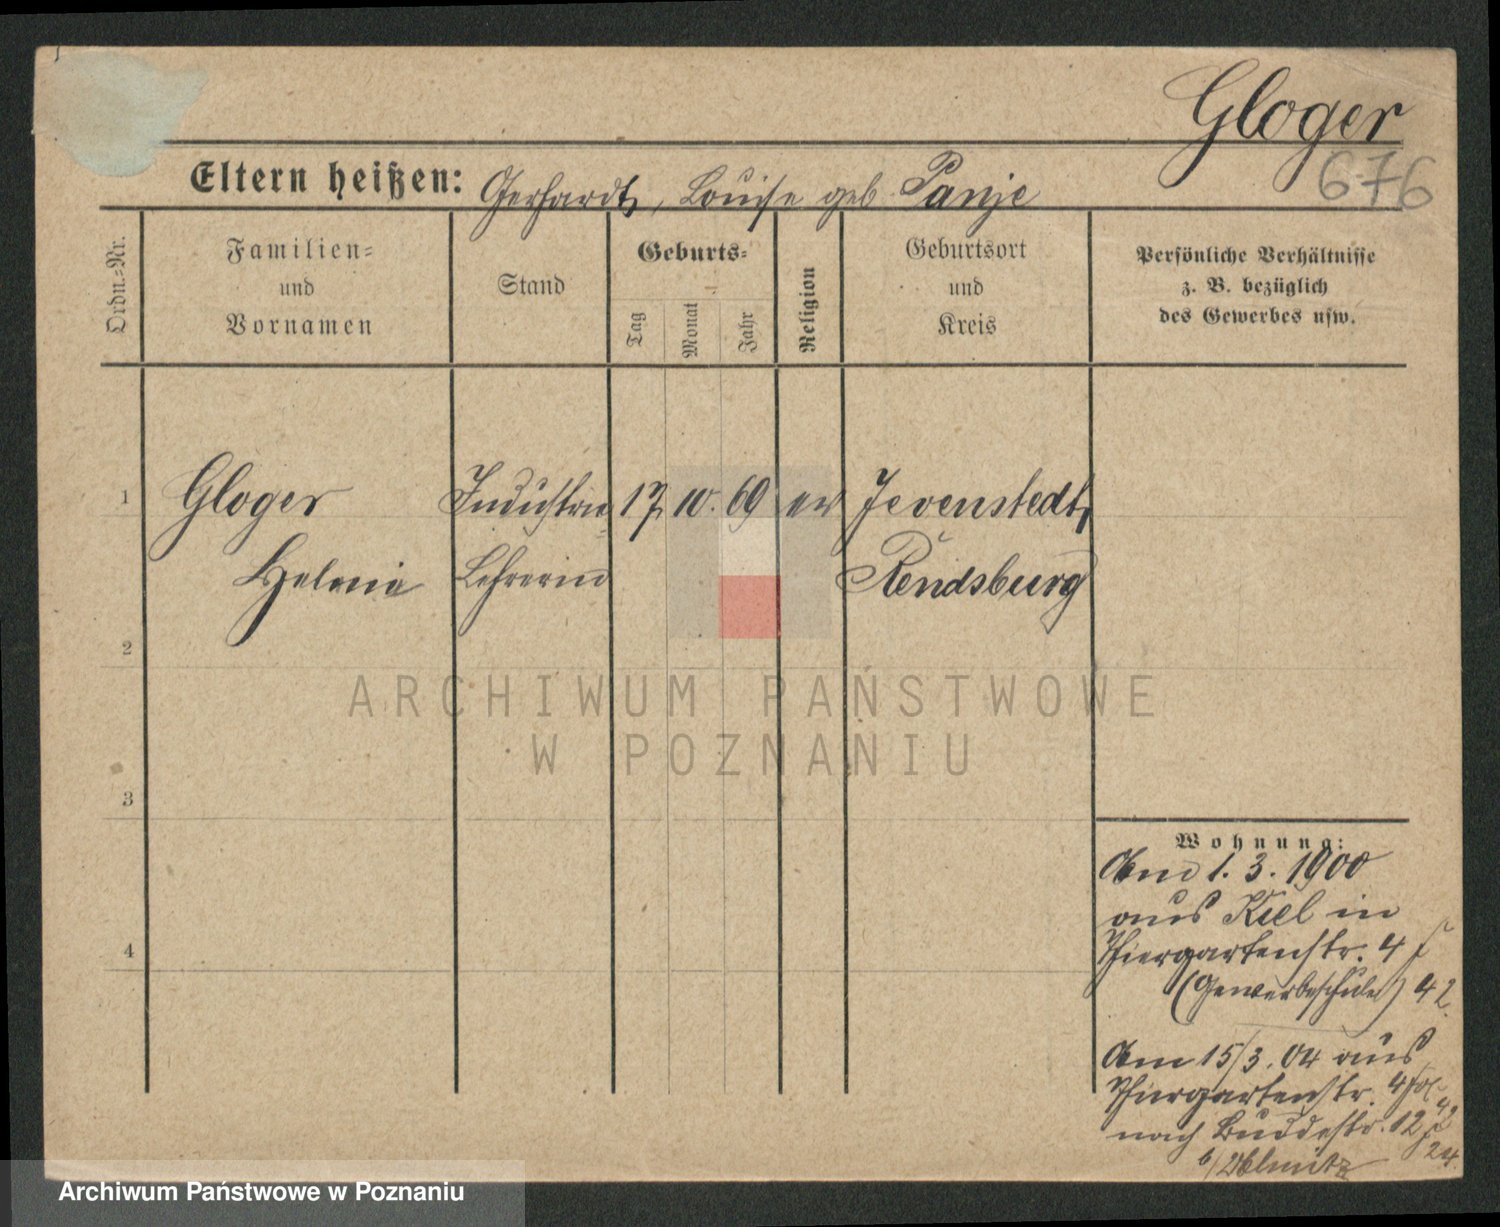 Gloger
676
Eltern heißen: Gerhardt, Louise geb. Panje
Ordn.=Nr.
Familien=
und
Vornamen
Stand
Geburts=
Tag
Monat
Jahr
Religion
Geburtsort
und
Kreis
Persönliche Verhältnisse
z. B. bezüglich
des Gewerbes usw.
1
Gloger Industrie 17. 10. 69 ev Jevenstedt,
Helene Lehrerin Rendsburg
2
ARCHIWUM PAŃSTWOWE
W POZNANIU
3
Wohnung:
Am 1. 3. 1900
aus Kiel in
Thiergartenstr. 4
(Gewerbeschule) 42.
4
Am 15/3. 04 aus
Thiergartenstr. 4
nach Buddestr. 12
b/
24
Archiwum Państwowe w Poznaniu